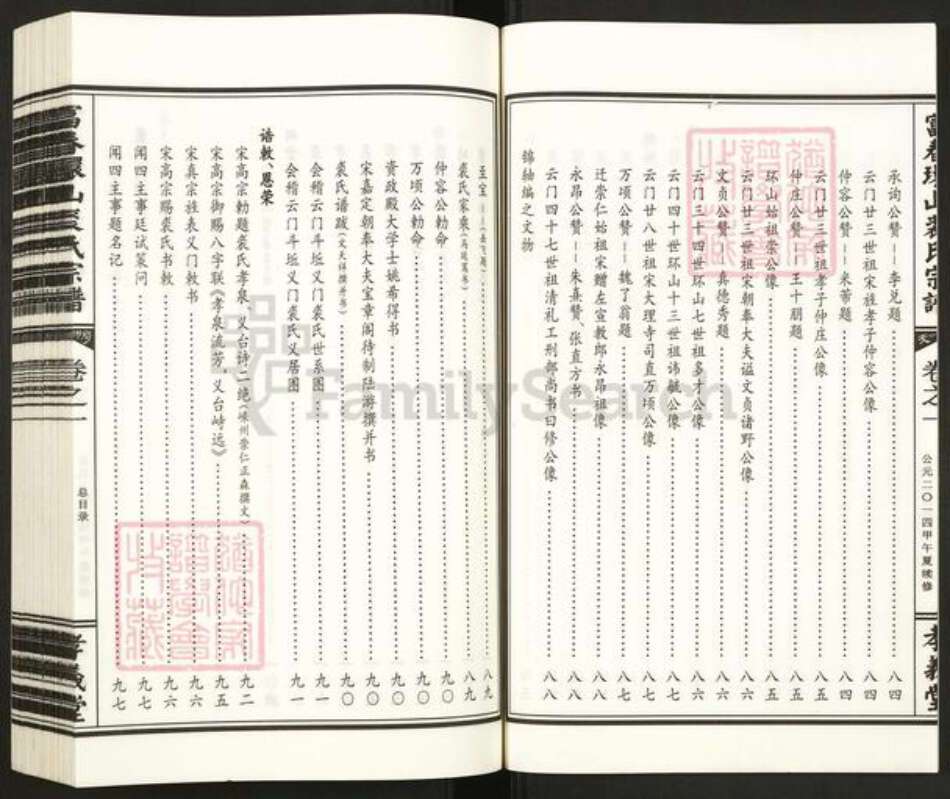 承询公赞——李兑题 八四
云门廿三世祖宋旌孝子仲容公像 八四
仲容公赞——米芾题 八四
云门廿三世祖孝子仲庄公像 八五
仲庄公赞——王十朋题 八五
环山始祖崇公像 八五
云门廿三世祖宋朝奉大夫谥文贞诸野公像 八六
文贞公赞——真德秀题 八六
云门三十四世环山七世祖多才公像 八六
云门四十世环山十三世祖讳毓公像 八七
云门廿八世祖宋大理寺司直万顷公像 八七
万顷公赞——魏了翁题 八七
迁崇仁始祖宋赠左宣教郎永昂祖像 八八
永昂公赞——朱熹赞、张直方书 八八
云门四十七世祖清礼工刑部尚书曰修公像 八八
锦轴编之文物
至宝（岳飞题） 八九
裘氏家乘 八九
仲容公勅命 九〇
万顷公勅命 九〇
资政殿大学士姚希得书 九〇
宋嘉定朝奉大夫宝章阁待制陆游撰并书 九〇
裘氏谱跋（文天祥撰并书） 九〇
会稽云门斗坵义门裘氏世系图 九一
会稽云门斗坵义门裘氏义居图 九一
诰敕、恩荣
宋高宗勅题裘氏孝泉、义台诗二绝（嵊州崇仁正森撰文） 九二
宋高宗御赐八字联《孝泉流芳 义台峙远》 九五
宋真宗旌表义门敕书 九六
宋高宗赐裘氏书敕 九六
闻四主事廷试策问 九七
闻四主事题名记 九七
卷之一
公元二〇一四甲午夏续修
孝义堂
富春环山裘氏宗谱
卷之一
总目录
孝义堂
FamilySearch